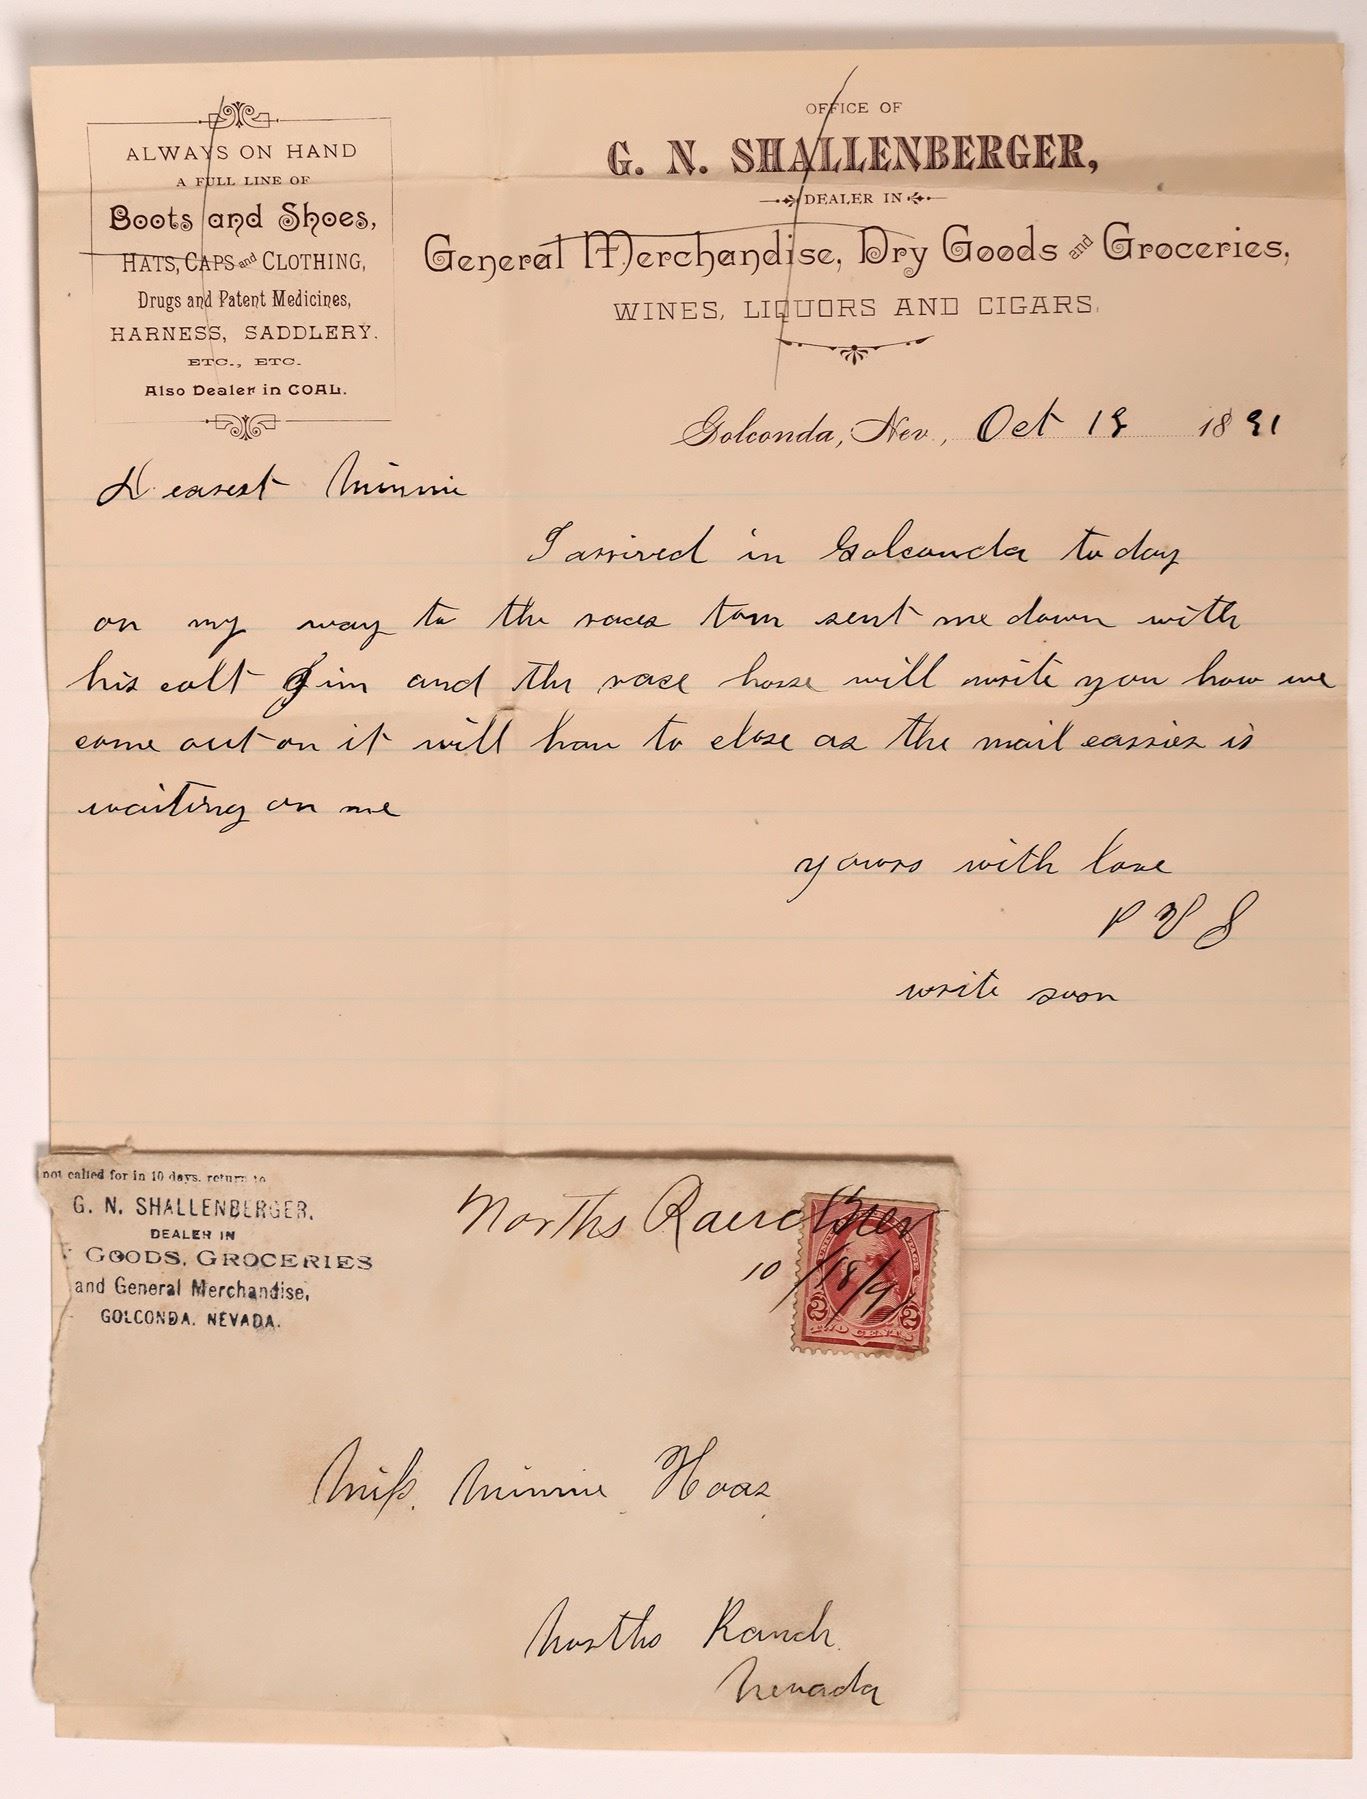 ALWAYS ON HAND
A FULL LINE OF
Boots and Shoes,
HATS, CAPS and CLOTHING,
Drugs and Patent Medicines,
HARNESS, SADDLERY.
ETC., ETC.
Also Dealer in COAL.
OFFICE OF
G. N. SHALLENBERGER,
DEALER IN
General Merchandise, Dry Goods and Groceries,
WINES, LIQUORS AND CIGARS.
Golconda, Nev., Oct 18 1891
Dearest Minnie
I arrived in Golconda to day
on my way to the races tom sent me down with
his colt Jim and the race horse will write you how we
come out on it will hav to close as the mail carrier is
waiting on me
yours with love
P
write soon
not called for in 10 days, return to
G. N. SHALLENBERGER,
DEALER IN
GOODS, GROCERIES
and General Merchandise,
GOLCONDA, NEVADA.
Norths Ranch Nev
10/18/91
TWO CENTS
2 2
Miss. Minnie Hoas
Norths Ranch
Nevada